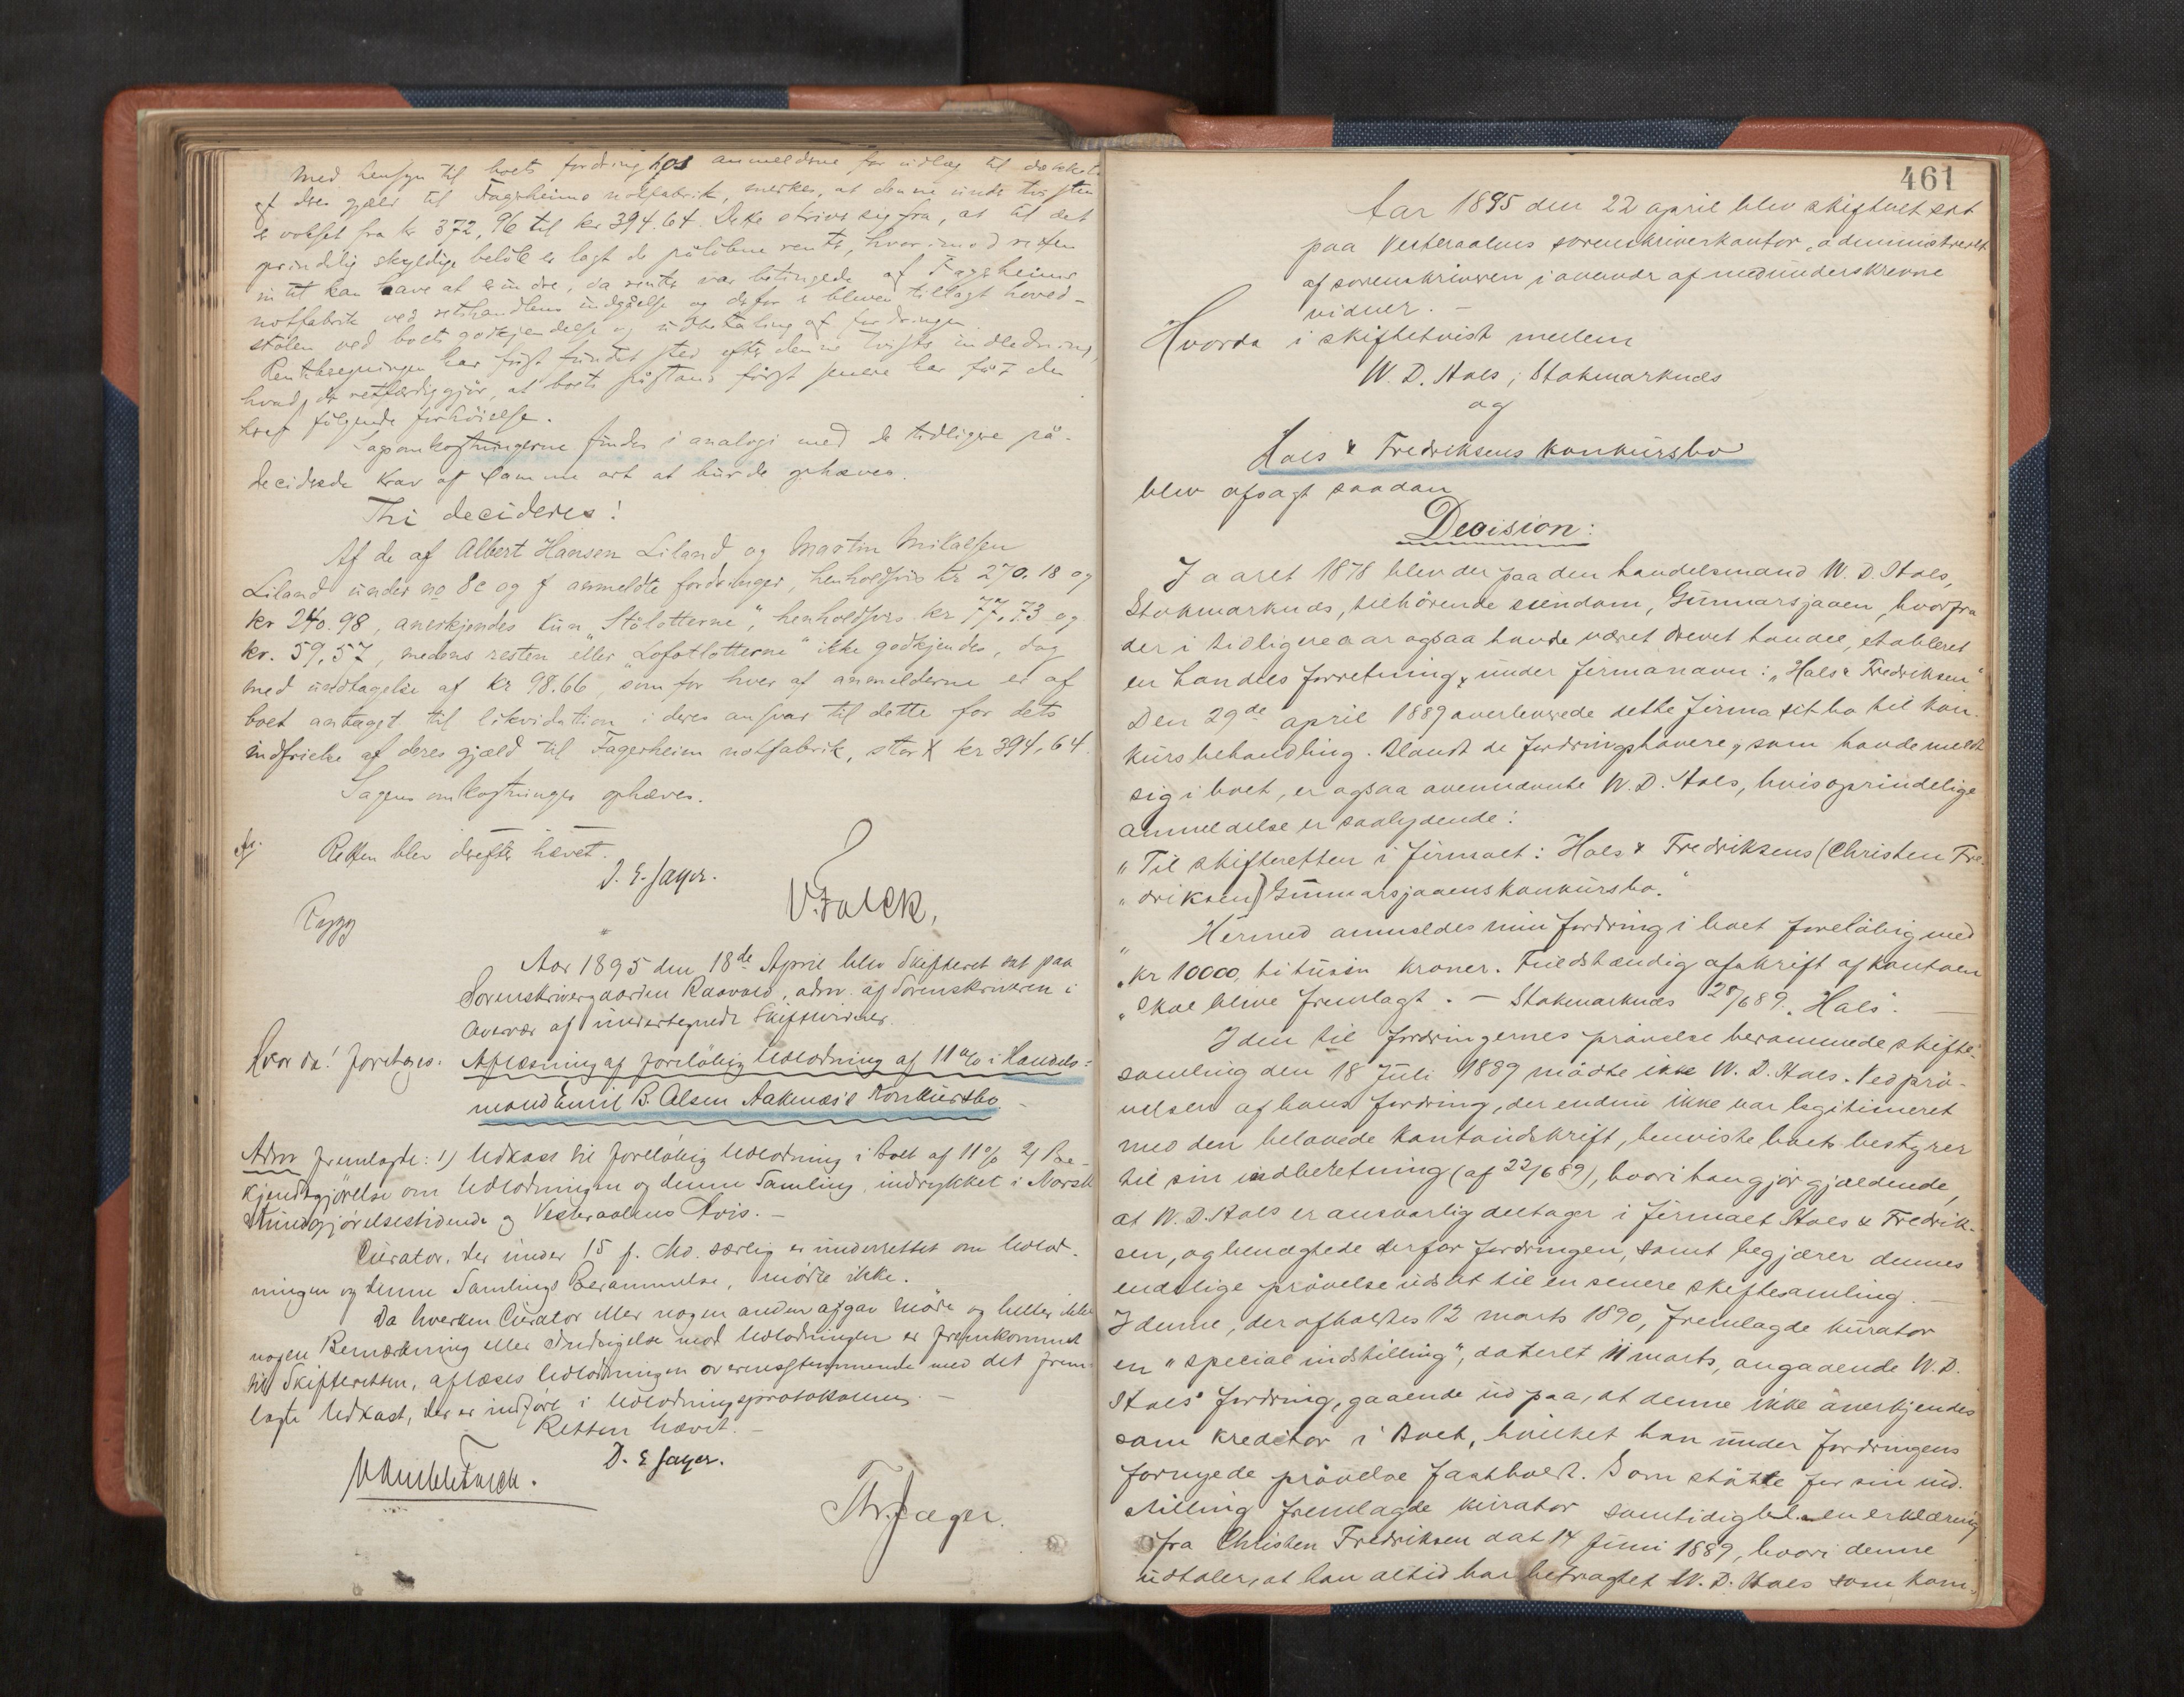 Med hensyn til boets fordring hos anmelderne for udlæg til dækkelse
af deres gjæld til Fagerheims notfabrik, merkes, at denne under tvisten
er vokset fra kr 372,96 til kr 394.64. Dette skriver sig fra, at til det
oprindelig skyldige beløb er lagt de påløbne renter, hvorimod retten
intet kan have at erindre, da renter var betingede af Fagerheims
notfabrik ved retshandlens indgåelse og derfor er bleven tillagt hoved-
stolen ved boets godkjendelse og udbetaling af fordringen
Renteberegningen har først fundet sted efter denne tvists indledning,
hvad der retfærdiggjør, at boets påstand først senere har fåt den
heraf følgende forhøielse.
Sagsomkostningerne findes i analogi med de tidligere på-
deciderede krav af samme art at burde ophæves.
Thi decideres!
Af de af Albert Hansen Liland og Martin Mikalsen
Liland under no 8e og f anmeldte fordringer, henholdsvis kr 270.18 og
kr 240.98, anerkjendes kun "Stölotterne", henholdsvis kr 77,73 og
kr. 59,57, medens resten eller "Lofotlotterne" ikke godkjendes, dog
med undtagelse af kr 98.66, som for hver af anmelderne er af
boet antaget til likvidation i deres ansvar til dette for dets
indfrielse af deres gjæld til Fagerheim notfabrik, stor kr 394,64.
Sagens omkostninger ophæves.
Retten blev derefter hævet.
D. E. Jayer.
V. Falck,
Aar 1895 den 18de April blev Skifteret sat paa
Sorenskrivergaarden Raavold, adm. af Sorenskriveren i
Overvær af undertegnede Skiftevidner.
Hvorda! foretoges: Aflæsning af foreløbig Udlodning af 11% i Handels-
mand Emil B. Olsen Aaknæs's Konkursbo
Adm fremlagte: 1) Udkast til foreløbig Udlodning i Boet af 11% 2) Be-
kjendtgjørelse om Udlodningen og denne Samling, indrykket i Norsk
Kundgjørelsestidende og Vesteraalens Avis. –
Curator, der under 15 f. Md. særlig er underrettet om Udlod-
ningen og denne Samlings Berammelse, mødte ikke.
Da hverken Curator eller nogen anden afgav Møde og heller ikke
nogen Bemærkning eller Indsigelse mod Udlodningen er fremkommet
til Skifteretten, aflæses Udlodningen overensstemmende med det frem-
lagte Udkast, der er indført i Udlodningsprotokollen. –
Retten hævet. –
D. E Jayer.
Th. Jæger.
461
Aar 1895 den 22 april blev skifteret sat
paa Vesteraalens sorenskriverkontor, administreret
af sorenskriveren i overvær af medunderskrevne
vidner. –
Hvorda i skiftetvist mellem
W. D. Hals, Stokmarknæs
og
Hals & Fredriksens konkursbo
blev afsagt saadan
Decision:
I aaret 1878 blev der paa den handelsmand W. D. Hals,
Stokmarknæs, tilhørende eiendom, Gunnarsjaaen, hvorfra
der i tidligere aar ogsaa havde været drevet handel, etableret
en handels forretning under firmanavn: "Hals & Fredriksen"
Den 29de april 1889 overleverede dette firma sit bo til kon-
kursbehandling. Blandt de fordringshavere, som havde meldt
sig i boet, er ogsaa ovennævnte W. D. Hals, hvis oprindelige
anmeldelse er saalydende:
"Til skifteretten i firmaet: Hals & Fredriksens (Christen Fre-
"driksen) Gunnarsjaaens konkursbo."
" Hermed anmeldes min fordring i boet foreløbig med
"kr 10000, titusin kroner. Fuldstændig afskrift af kontoen
"skal blive fremlagt. – Stokmarknæs 28/6 89. Hals". –
I den til fordringernes prøvelse berammede skifte-
samling den 18 Juli 1889 mødte ikke W. D. Hals. Ved prø-
velsen af hans fordring, der endnu ikke var legitimeret
med den belovede kontoudskrift, henviste boets bestyrer
til sin indberetning (af 22/6 89), hvori han gjør gjældende,
at W. D. Hals er ansvarlig deltager i firmaet Hals & Fredrik-
sen, og benægtede derfor fordringen, samt begjærer dennes
endelige prøvelse udsat til en senere skiftesamling. –
I denne, der afholdtes 12 marts 1890, fremlagde kurator
en "special indstilling", dateret 11 marts, angaaende W. D.
Hals' fordring, gaaende ud paa, at denne ikke anerkjendes
som kreditor i Boet, hvilket han under fordringens
fornyede prøvelse fastholdt. Som støtte for sin ind-
stilling fremlagde kurator samtidig bl. a. en erklæring
fra Christen Fredriksen dat 14 Juni 1889, hvori denne
udtaler, at han altid har betragtet W. D. Hals som kom-